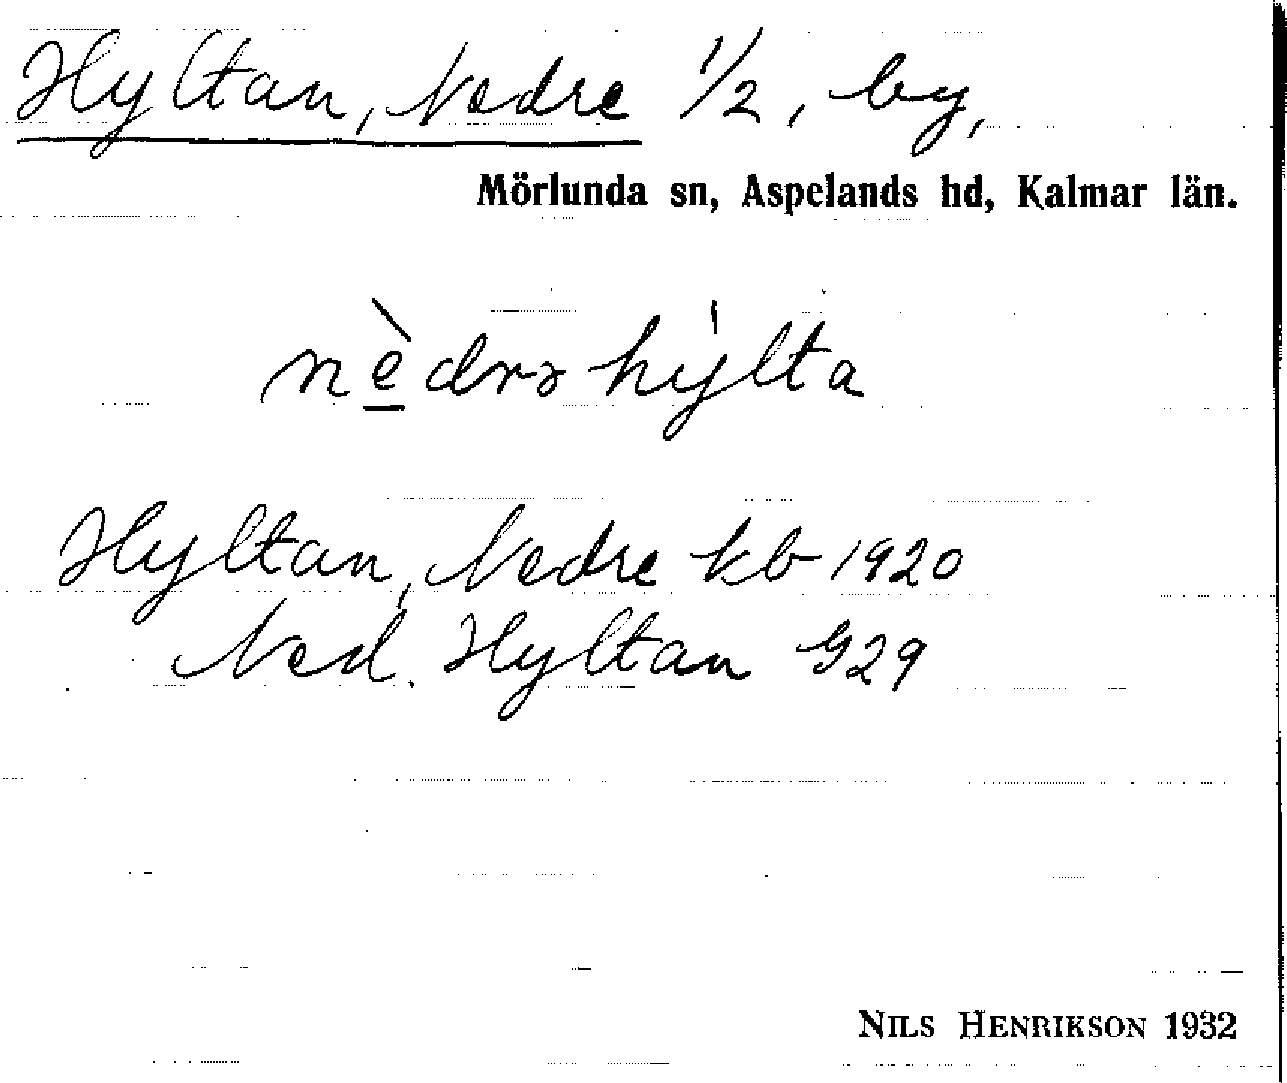 Hyltan, Nedre 1/2, by,
Mörlunda sn, Aspelands hd, Kalmar län.
nèdrə hy̍lta
Hyltan, Nedre kb 1920
Ned. Hyltan G29
NILS HENRIKSON 1932